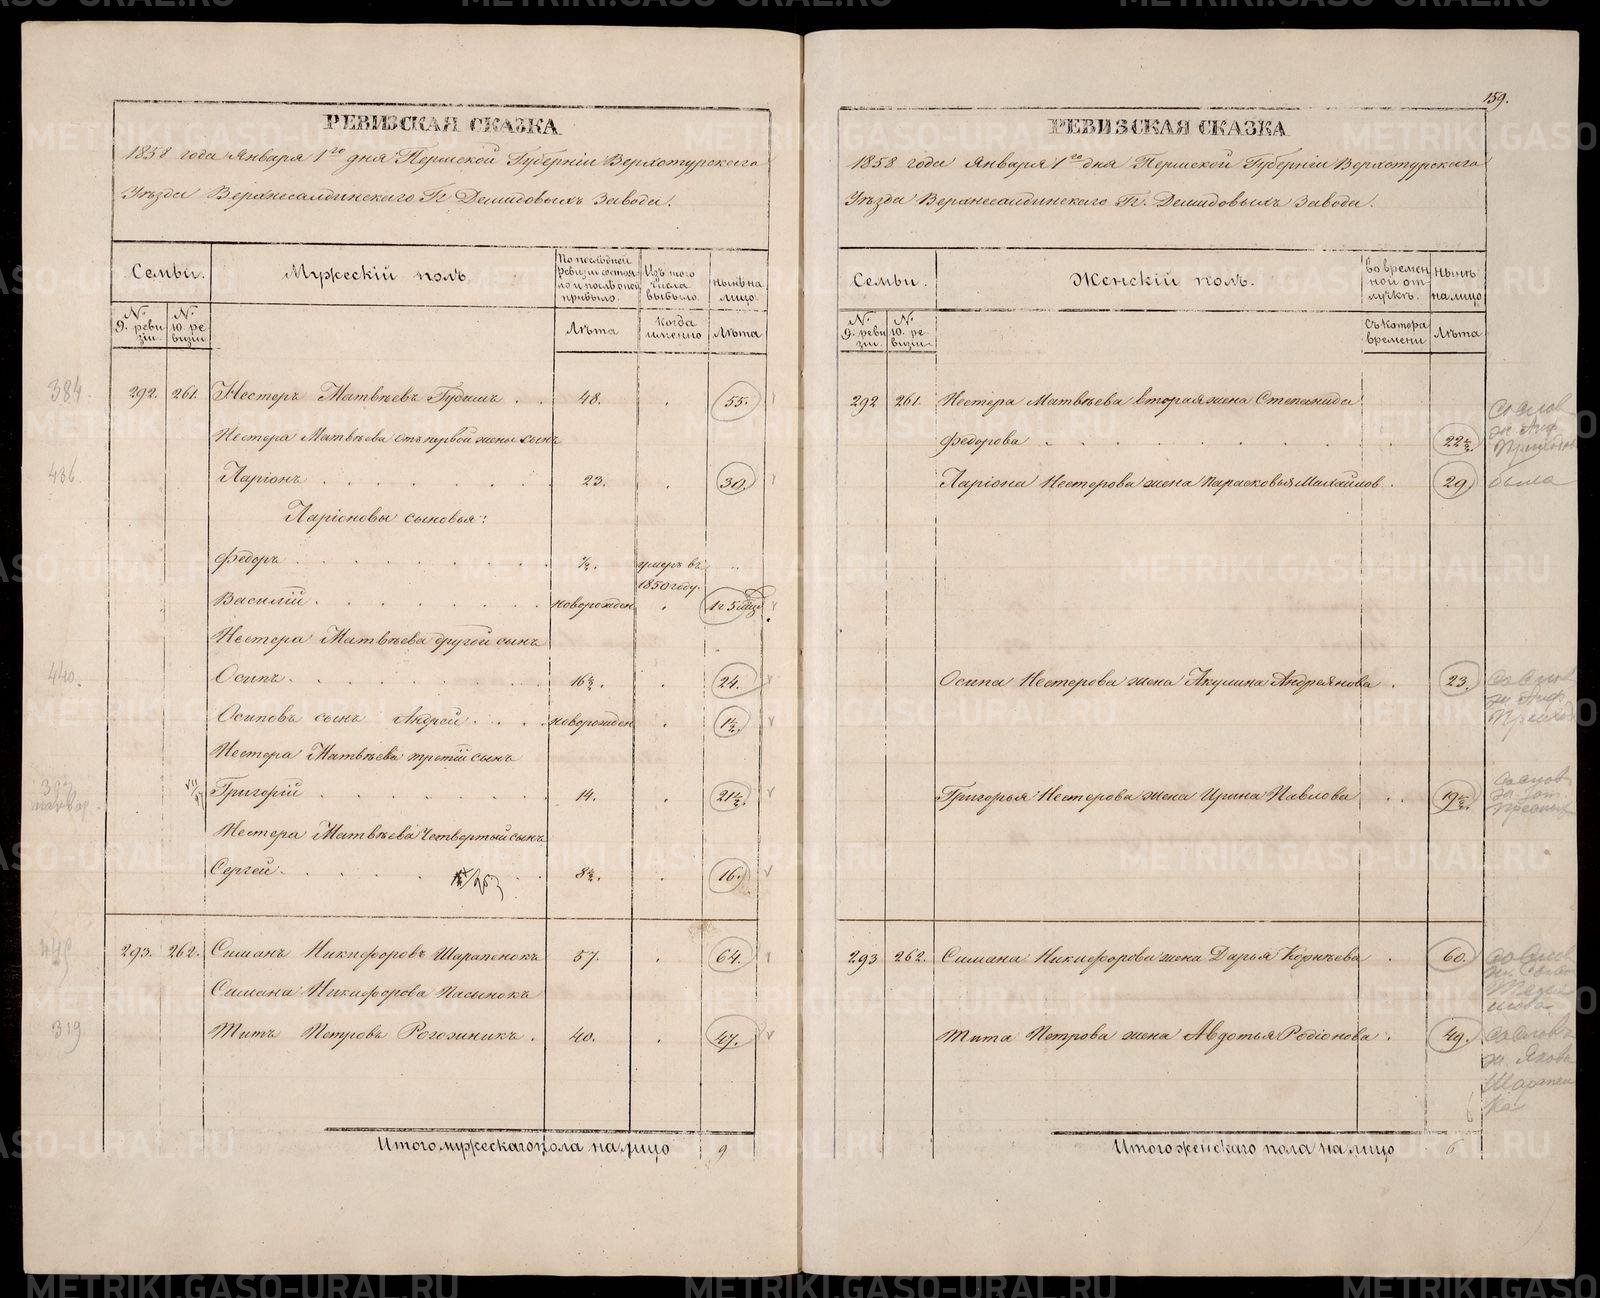 РЕВИЗСКАЯ СКАЗКА
1858 года Января 1го дня Пермской Губерніи Верхотурскаго
Уѣзда Верхнесалдинскаго Гг. Демидовыхъ Завода.
Семьи.
Мужескій полъ.
По послѣдней ревизіи состояло и послѣ оной прибыло.
Изъ того числа выбыло.
нынѣ на лицо.
№ 9. ревизіи.
№ 10. ревизіи
Лѣта
Когда именно
Лѣта
384.
292. 261. Нестеръ Матвѣевъ Гудимъ . . 48. . 55.
Нестера Матвѣева отъ первой жены сынъ
436.
Ларіонъ 23. . 30.
Ларіоновы сыновья:
Федоръ умеръ въ 1850 году.
Василій новорожден . 1 г 5 мцо
Нестера Матвѣева другой сынъ
440.
Осипъ. 16½. . 24.
Осиповъ сынъ Андрей новорожден . 1½.
Нестера Матвѣева третій сынъ
Григорій 14. . 21½.
Нестера Матвѣева Четвертый сынъ
Сергей 8½. . 16.
293. 262. Симанъ Никифоровъ Шарапенокъ 57. . 64.
Симана Никифорова Пасынокъ
319
Титъ Петровъ Рогожникъ . 40. . 47.
Итого мужескаго пола на лицо 9
159.
РЕВИЗСКАЯ СКАЗКА
1858 года Января 1го дня Пермской Губерніи Верхотурскаго
Уѣзда Верхнесалдинскаго Гг. Демидовыхъ Завода.
Семьи.
Женскій полъ.
Во временной отлучкѣ.
нынѣ на лицо
№ 9. ревизіи.
№ 10. ревизіи
Съ котора времени
Лѣта
292 261. Нестера Матвѣева вторая жена Степанида
Федорова 22½.
Ларіона Нестерова жена Парасковья Михайлов . 29
была
Осипа Нестерова жена Акулина Андреянова . 23.
Григорья Нестерова жена Ирина Павлова . . 19½.
293 262. Симана Никифорова жена Дарья Корнѣева . 60.
Тита Петрова жена Авдотья Родіонова . 49.
Итого женскаго пола на лицо 6
METRIKI.GASO-URAL.RU